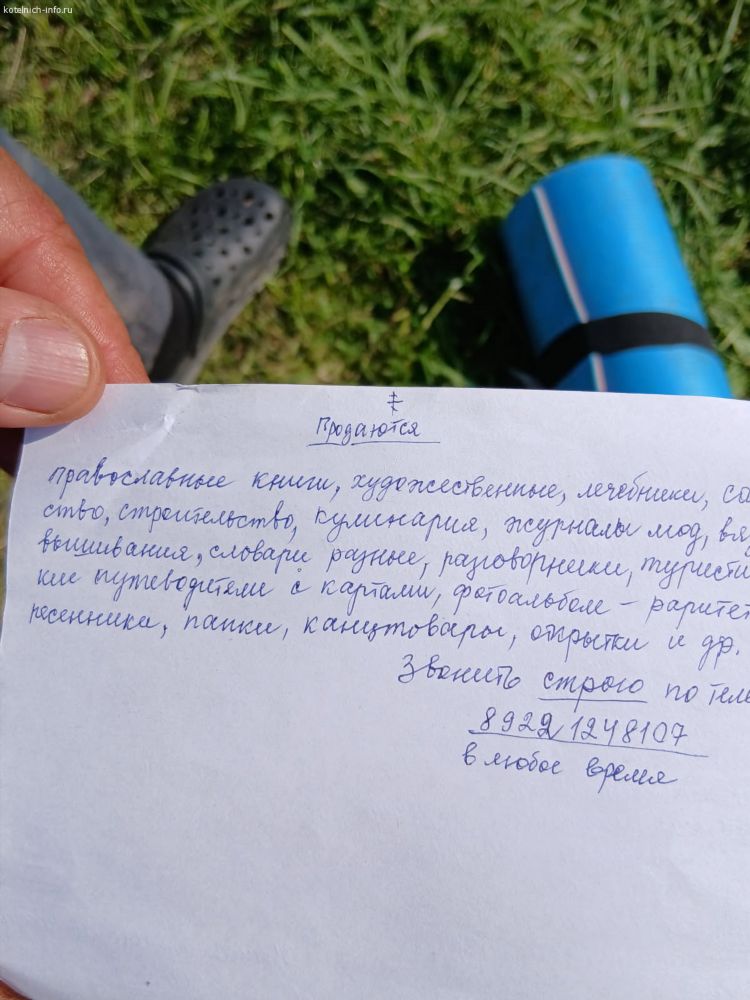 kotelnich-info.ru
Продаются
православные книги, художественные, лечебники, са
ство, строительство, кулинария, журналы мод, вя
вышивания, словари разные, разговорники, туристи
кие путеводители с картами, фотоальбом – раритет
песенники, папки, канцтовары, открытки и др.
Звонить строго по тел
89221248107
в любое время